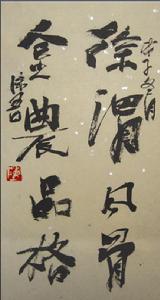 徐渭风骨
金農品格